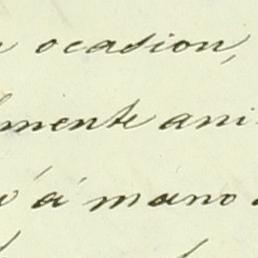 ocasion,
mente ani
á mano